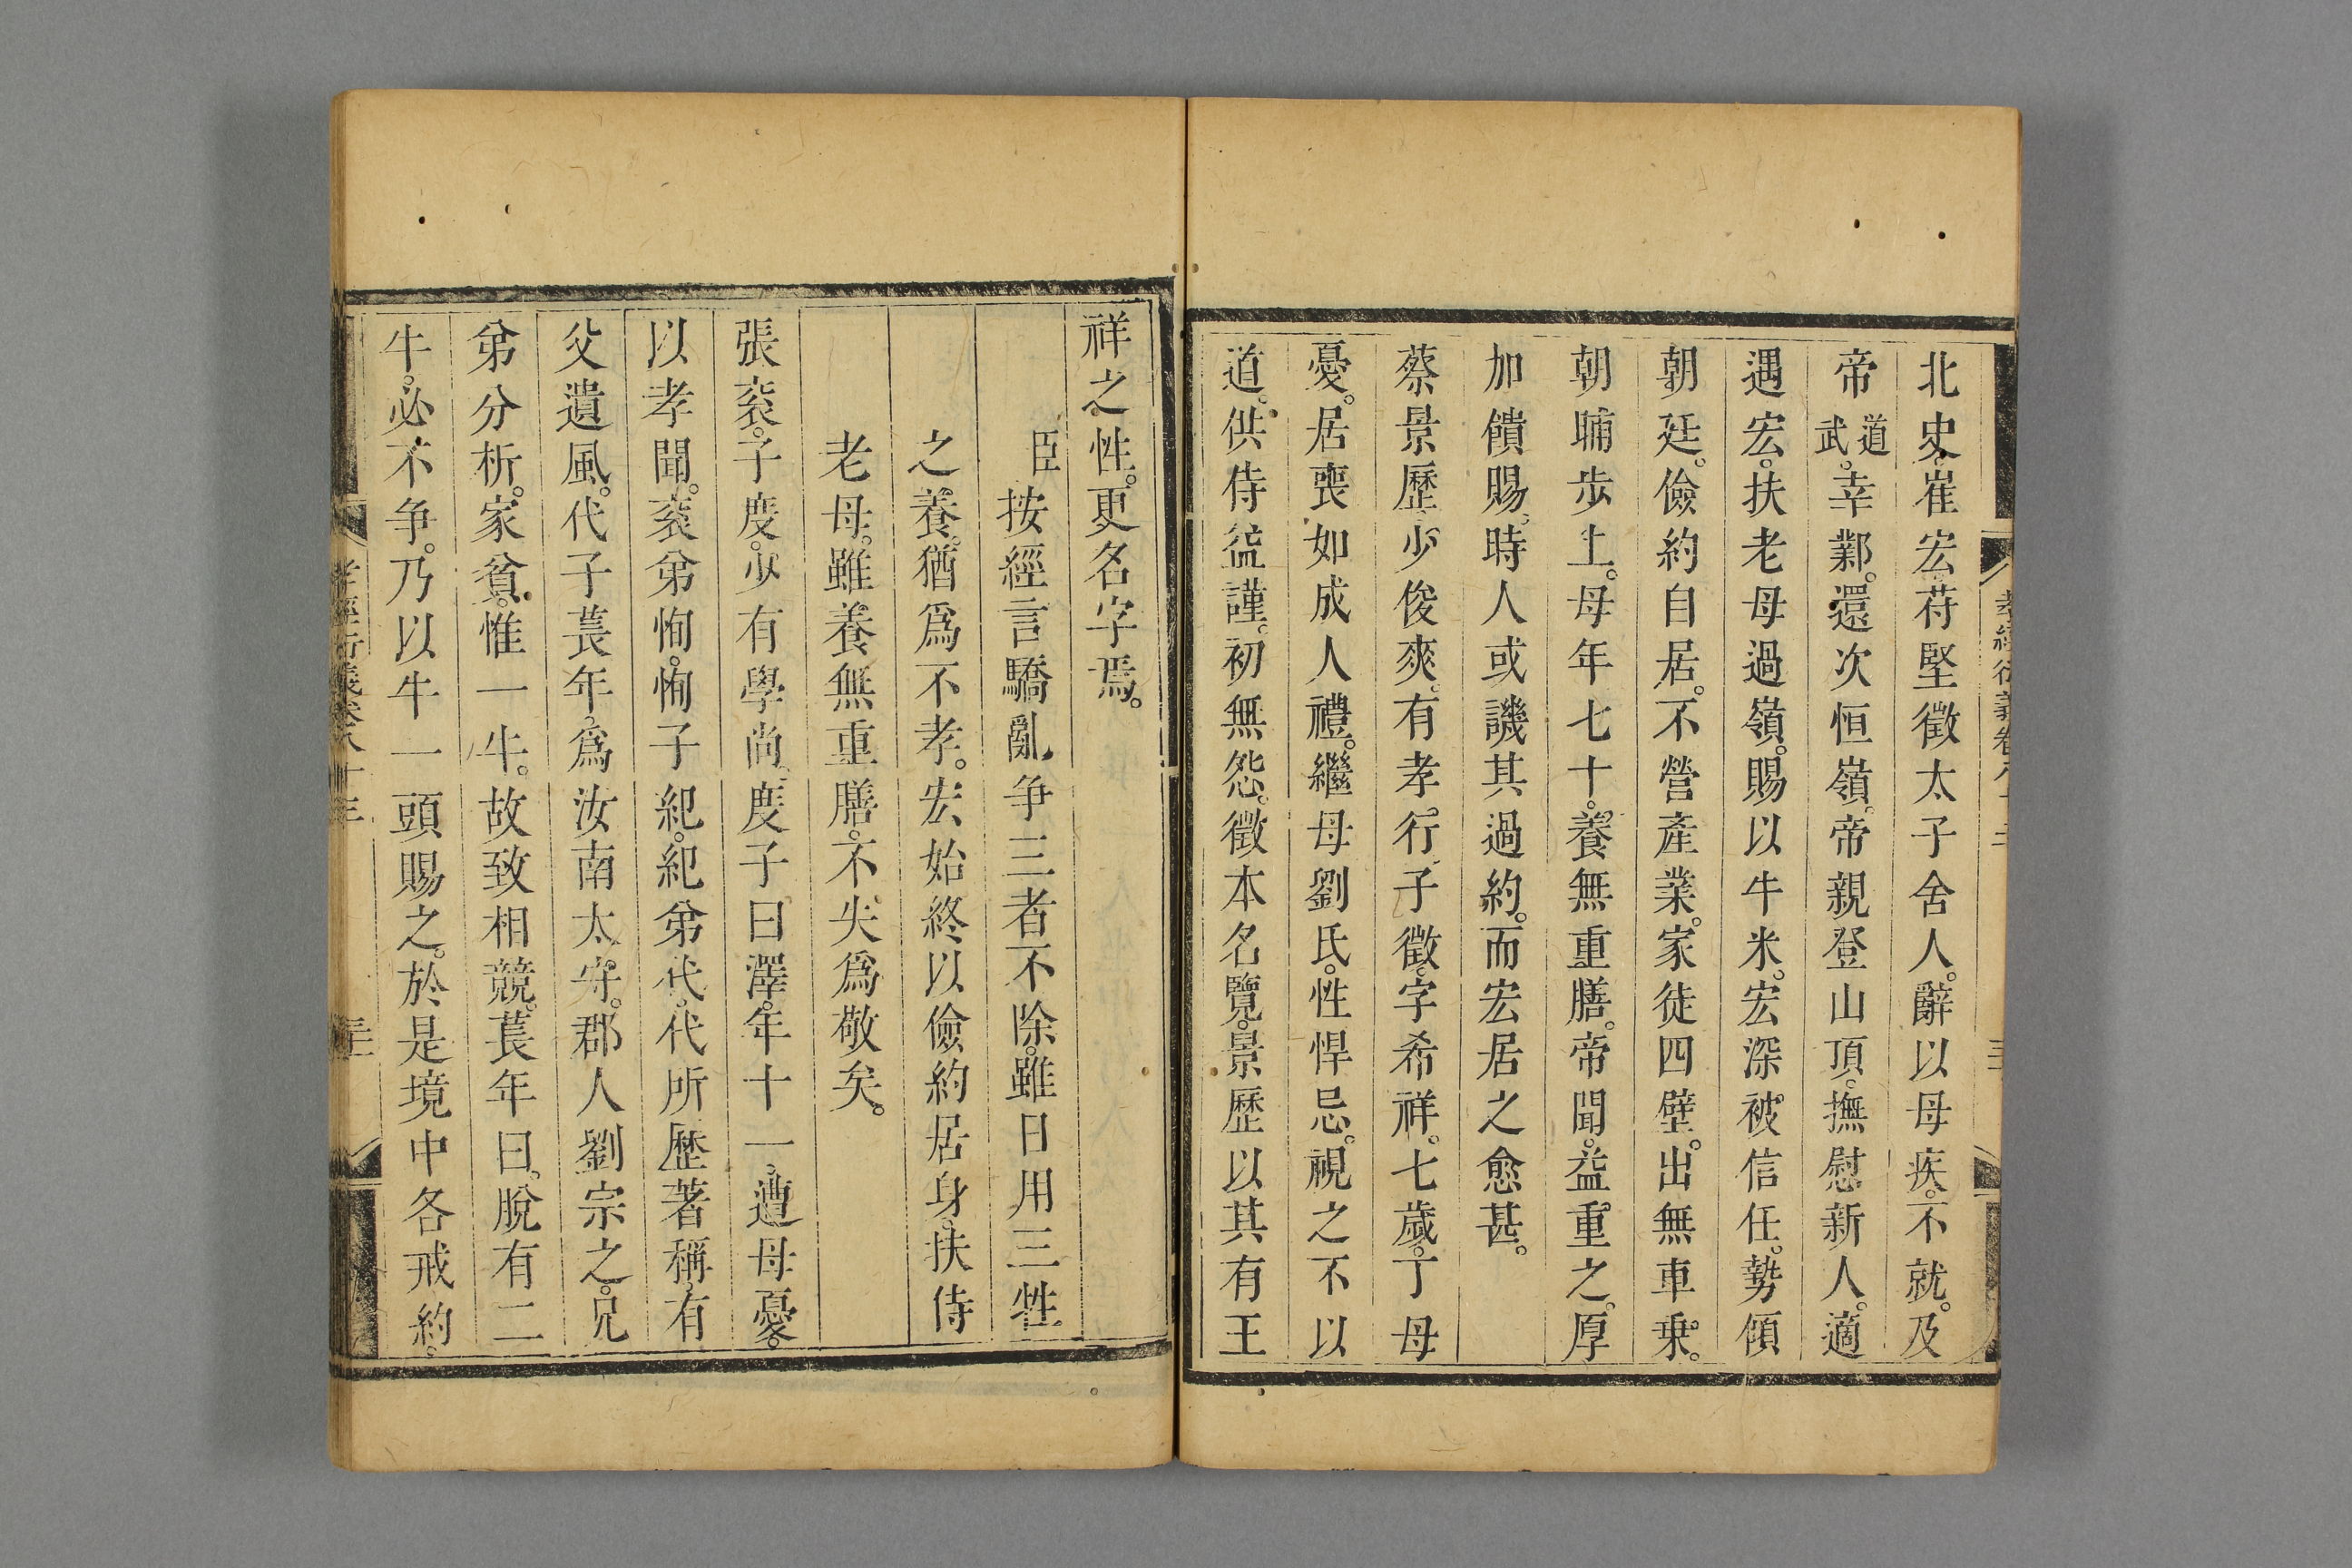 北史。崔宏苻堅徵太子舍人。辭以母疾。不就。及
帝道武。幸鄴。還次恒嶺。帝親登山頂。撫慰新人。適
遇宏。扶老母過嶺。賜以牛米。宏深被信任。勢傾
朝廷。儉約自居。不營產業。家徒四壁。出無車乗。
朝晡步上。母年七十。養無重膳。帝聞。益重之。厚
加饋賜。時人或譏其過約。而宏居之愈甚。
蔡景歷少俊爽。有孝行。子徵。字希祥。七歲。丁母
憂。居喪如成人禮。繼母劉氏。性悍忌。視之不以
道。供侍益謹。初無怨。徵本名覽。景歷以其有王
祥之性。更名字焉。
臣按經言驕亂争三者不除。雖日用三牲
之養。猶爲不孝。宏始終以儉約居身。扶侍
老母。雖養無重膳。不失爲敬矣。
張衮。子度。少有學尚。度子曰澤。年十一。遭母憂。
以孝聞。衮弟恂。恂子紀。紀弟代。代所歷著稱。有
父遺風。代子萇年。爲汝南太守。郡人劉宗之。兄
弟分析。家貧。惟一牛。故致相競。萇年曰。脫有二
牛。必不争。乃以牛一頭賜之。於是境中各戒約。
孝經衍義卷八十三